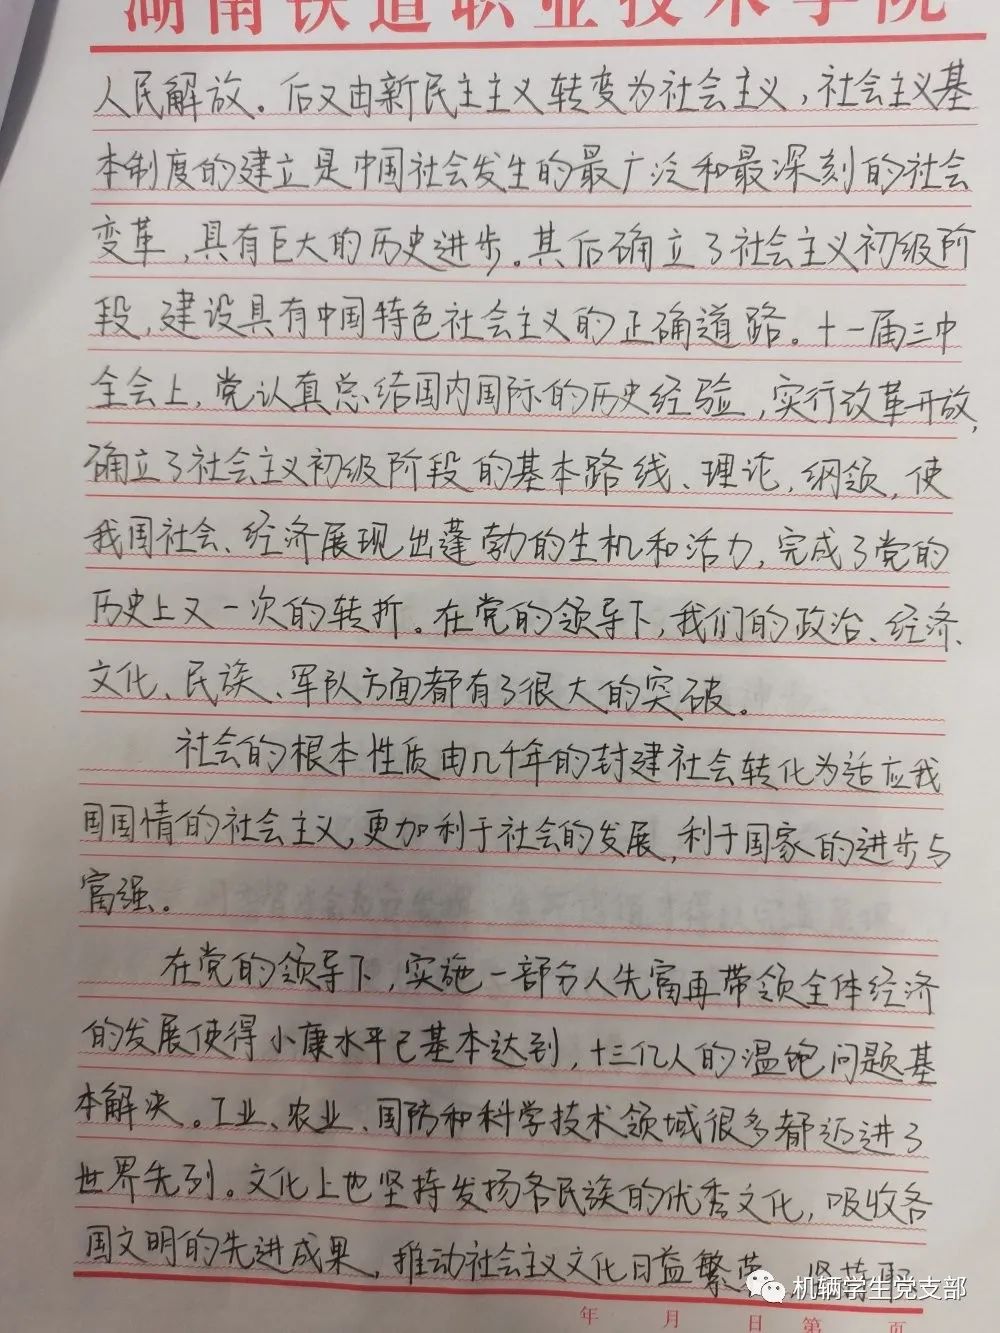 湖南铁道职业技术学院
人民解放。后又由新民主主义转变为社会主义，社会主义基
本制度的建立是中国社会发生的最广泛和最深刻的社会
变革，具有巨大的历史进步。其后确立了社会主义初级阶
段，建设具有中国特色社会主义的正确道路。十一届三中
全会上，党认真总结国内国际的历史经验，实行改革开放，
确立了社会主义初级阶段的基本路线、理论，纲领，使
我国社会、经济展现出蓬勃的生机和活力，完成了党的
历史上又一次的转折。在党的领导下，我们的政治、经济、
文化、民族、军队方面都有了很大的突破。
社会的根本性质由几千年的封建社会转化为适应我
国国情的社会主义，更加利于社会的发展，利于国家的进步与
富强。
在党的领导下，实施一部分人先富再带领全体经济
的发展使得小康水平已基本达到，十三亿人的温饱问题基
本解决。工业、农业、国防和科学技术领域很多都迈进了
世界先列。文化上也坚持发扬各民族的优秀文化，吸收各
国文明的先进成果，推动社会主义文化日益繁荣
机辆学生党支部
年 月 日 第 页